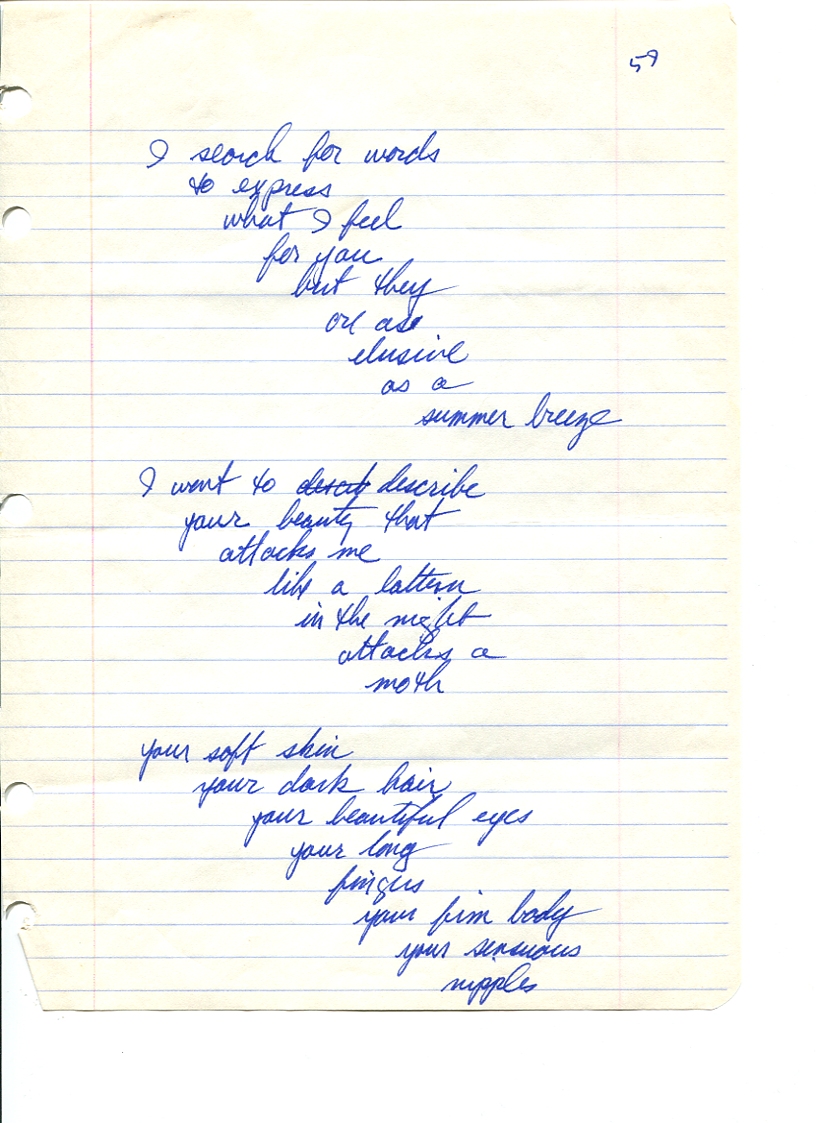 59
I search for words
to express
what I feel
for you
but they
are as
elusive
as a
summer breeze
I want to describe
your beauty that
attacks me
like a lattern
in the night
attacks a
moth
your soft skin
your dark hair
your beautiful eyes
your long
fingers
your firm body
your sensuous
nipples